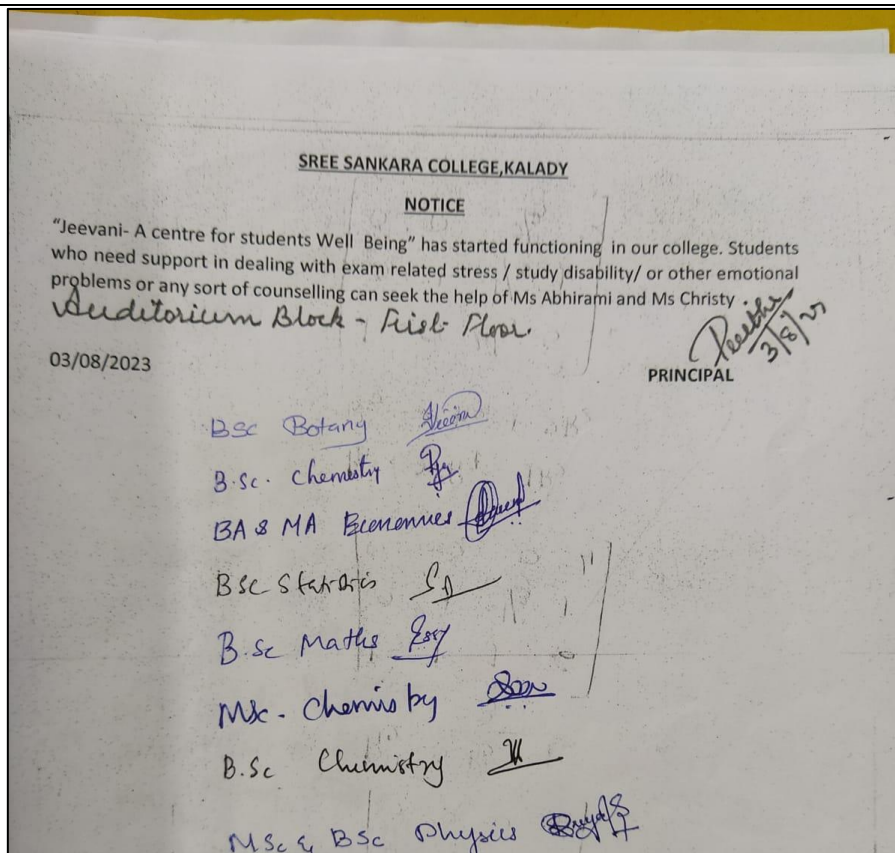 SREE SANKARA COLLEGE,KALADY
NOTICE
"Jeevani- A centre for students Well Being" has started functioning in our college. Students
who need support in dealing with exam related stress / study disability/ or other emotional
problems or any sort of counselling can seek the help of Ms Abhirami and Ms Christy .
Auditorium Block - First Floor.
3/8/23
03/08/2023
PRINCIPAL
BSc Botany
B.Sc. Chemistry
BA & MA Economics
BSc Statistics
B.Sc Maths
MSc. Chemistry
B.Sc Chemistry
MSc & BSc Physics